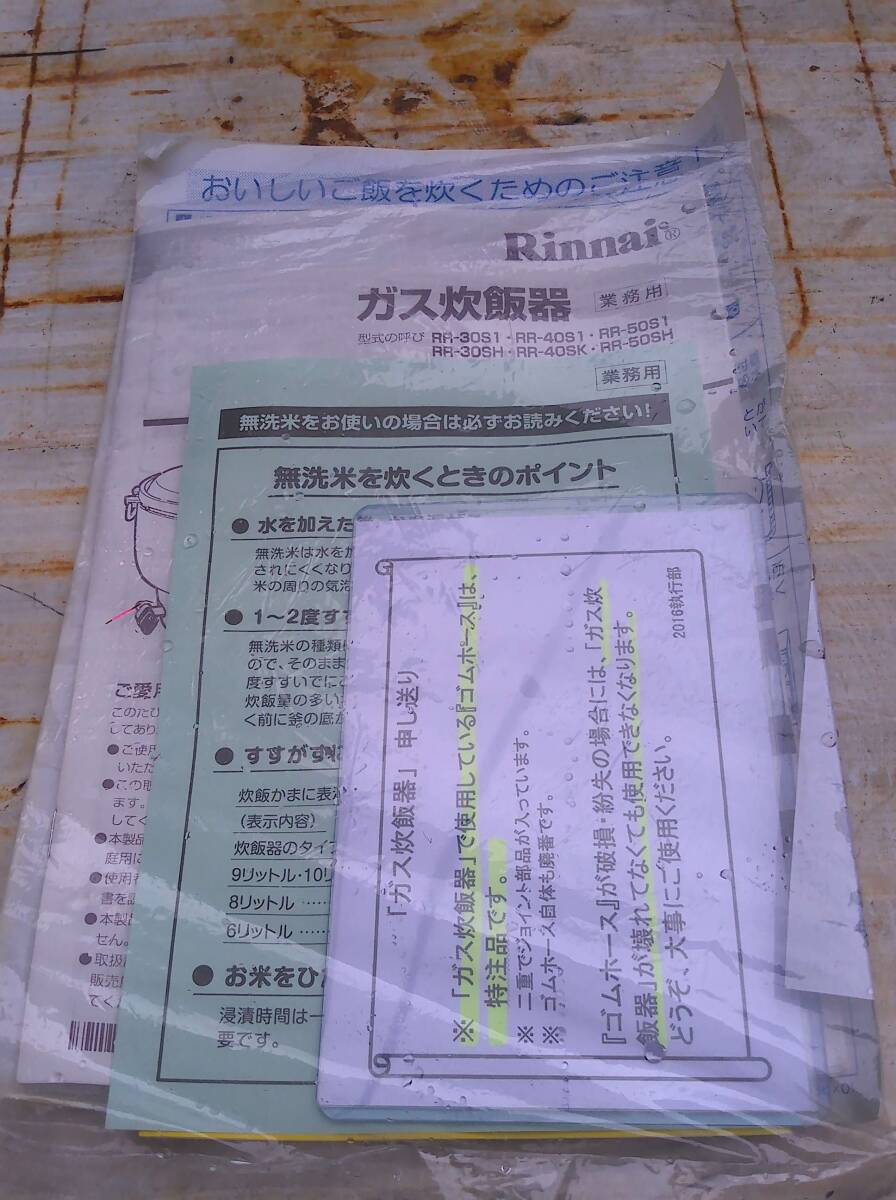 おいしいご飯を炊くためのご注意
Rinnai®
ガス炊飯器 業務用
型式の呼び RR-30S1・RR-40S1・RR-50S1
RR-30SH・RR-40SK・RR-50SH
業務用
無洗米をお使いの場合は必ずお読みください!
無洗米を炊くときのポイント
● 水を加えた
無洗米は水を加
されにくくなり
米の周りの気泡
● 1〜2度すす
無洗米の種類
ので、そのまま
度すすいでにこ
炊飯量の多い
く前に釜の底が
● すすがず
炊飯かまに表
(表示内容)
炊飯器のタイプ
9リットル・10リ
8リットル ……
6リットル ……
● お米をひた
浸漬時間は一
要です。
ご愛用
このたび
してあり
●ご使用
いただ
●この取
ます。
してく
●本製品
庭用に
●使用者
書を
●本製品
せん。
●取扱
販売
てく
「ガス炊飯器」 申し送り
※ 「ガス炊飯器」で使用している『ゴムホース』は、
特注品です。
※ 二重でジョイント部品が入っています。
※ ゴムホース自体も廃番です。
『ゴムホース』が破損・紛失の場合には、「ガス炊
飯器」が壊れてなくても使用できなくなります。
どうぞ、大事にご使用ください。
2016執行部